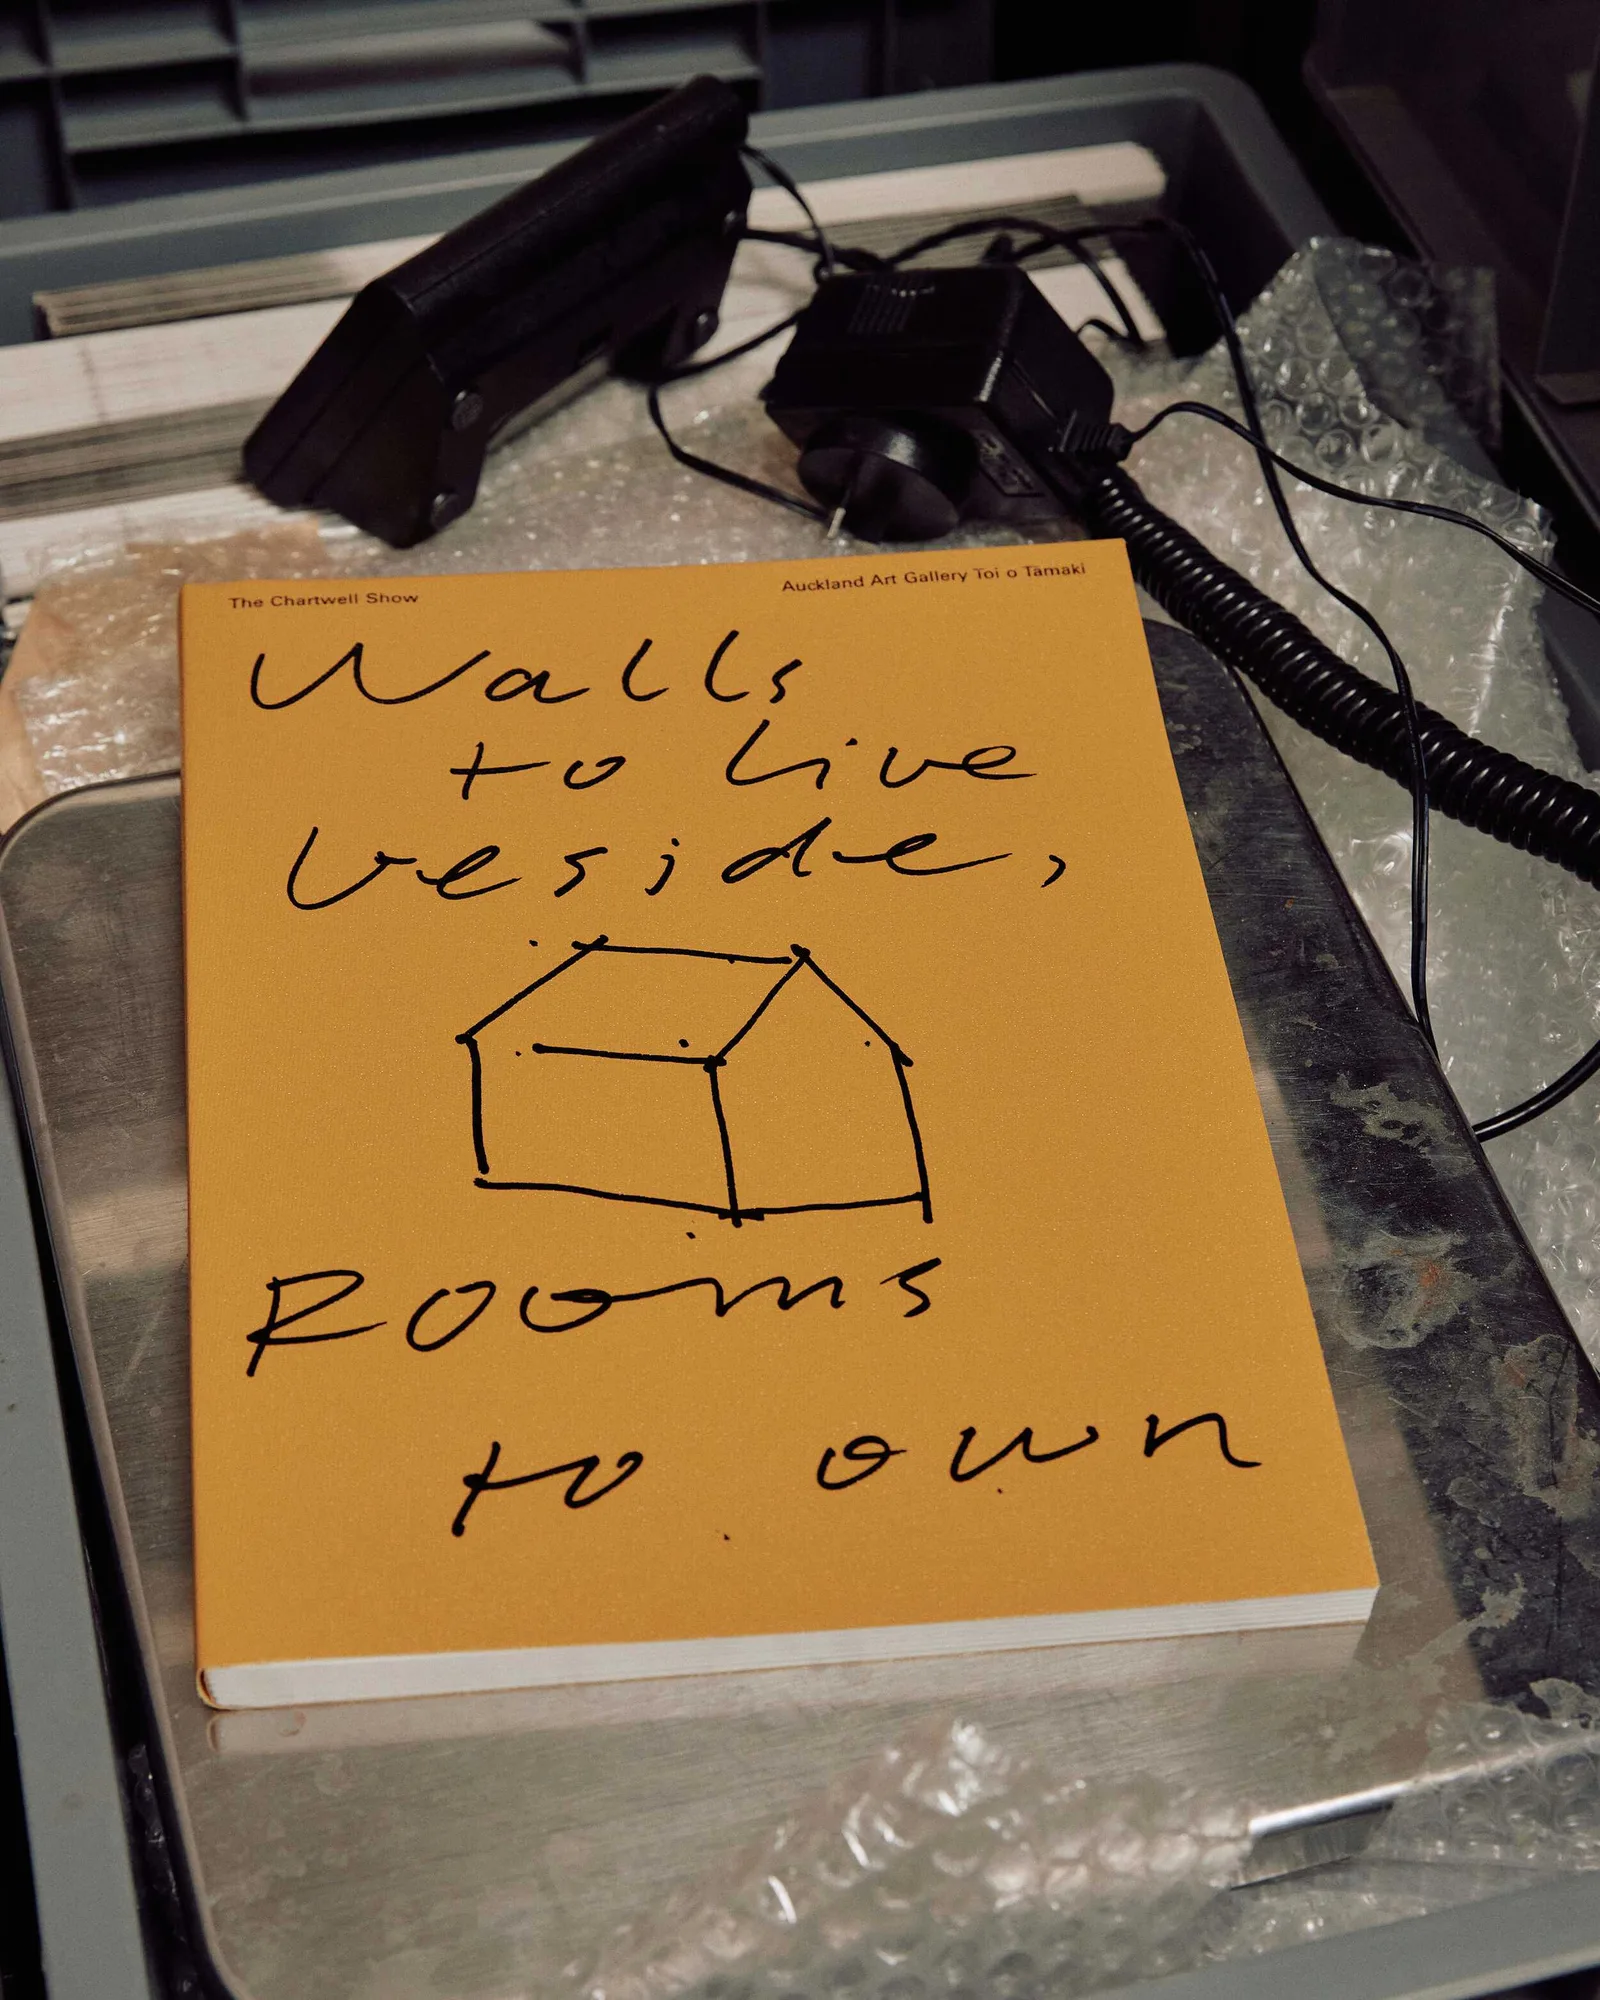 The Chartwell Show
Auckland Art Gallery Toi o Tāmaki
Walls
to live
beside,
Rooms
to own